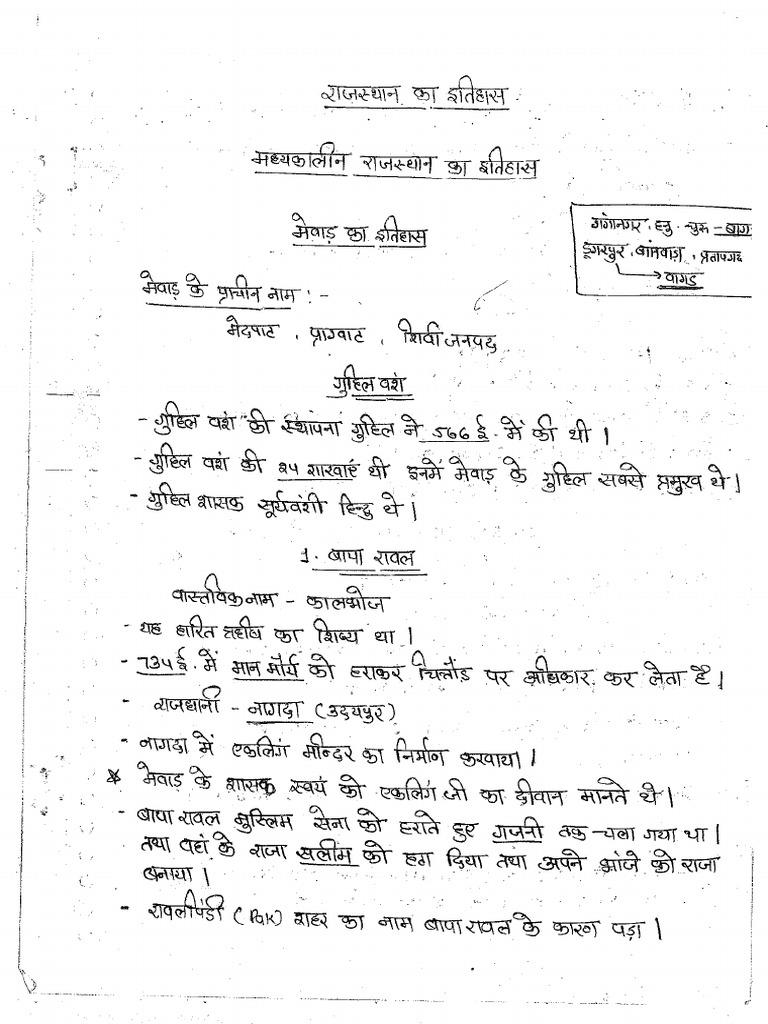 राजस्थान का इतिहास
मध्यकालीन राजस्थान का इतिहास
मेवाड़ का इतिहास
गंगानगर, हनु. चुरू - बाग
डूंगरपुर, बांसवाड़ा, प्रतापगढ़
→ वागड
मेवाड़ के प्राचीन नाम :-
मेदपाट, प्राग्वाट, शिवि जनपद
गुहिल वंश
- गुहिल वंश की स्थापना गुहिल ने 566 ई. में की थी।
- गुहिल वंश की २५ शाखाएं थी इनमें मेवाड़ के गुहिल सबसे प्रमुख थे।
- गुहिल शासक सूर्यवंशी हिन्दु थे।
1. बापा रावल
वास्तविक नाम - कालभोज
- यह हारित का शिष्य था।
- 734 ई. में मान मौर्य को हराकर चित्तौड़ पर अधिकार कर लेता है।
- राजधानी - नागदा (उदयपुर)
- नागदा में एकलिंग मन्दिर का निर्माण करवाया।
* मेवाड़ के शासक स्वयं को एकलिंग जी का दीवान मानते थे।
- बापा रावल मुस्लिम सेना को हराते हुए गजनी तक चला गया था।
तथा वहां के राजा सलीम को हटा दिया तथा अपने भांजे को राजा
बनाया।
- रावलपिंडी (Pak) शहर का नाम बापा रावल के कारण पड़ा।